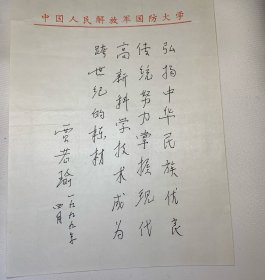 中国人民解放军国防大学
弘扬中华民族优良
传统努力掌握现代
高新科学技术成为
跨世纪的栋材
贾若瑜
一九九九年
四月